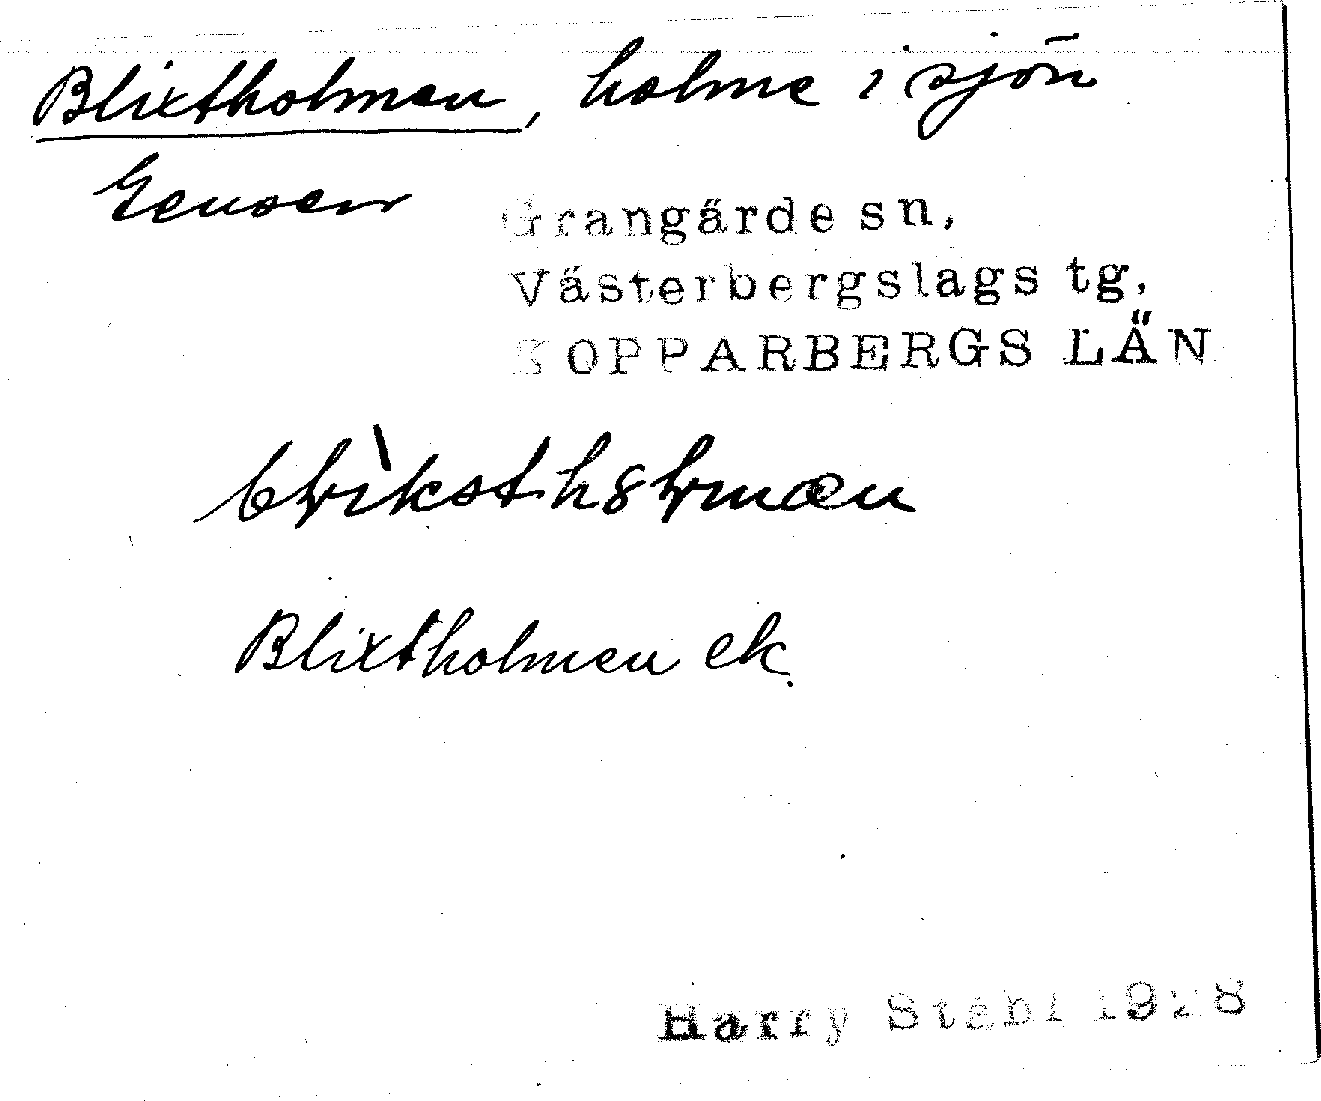 Blixtholmen, holme i sjön
Grangärde sn,
Västerbergslags tg,
KOPPARBERGS LÄN
Blixtholmen ek.
Harry Ståhl 1928